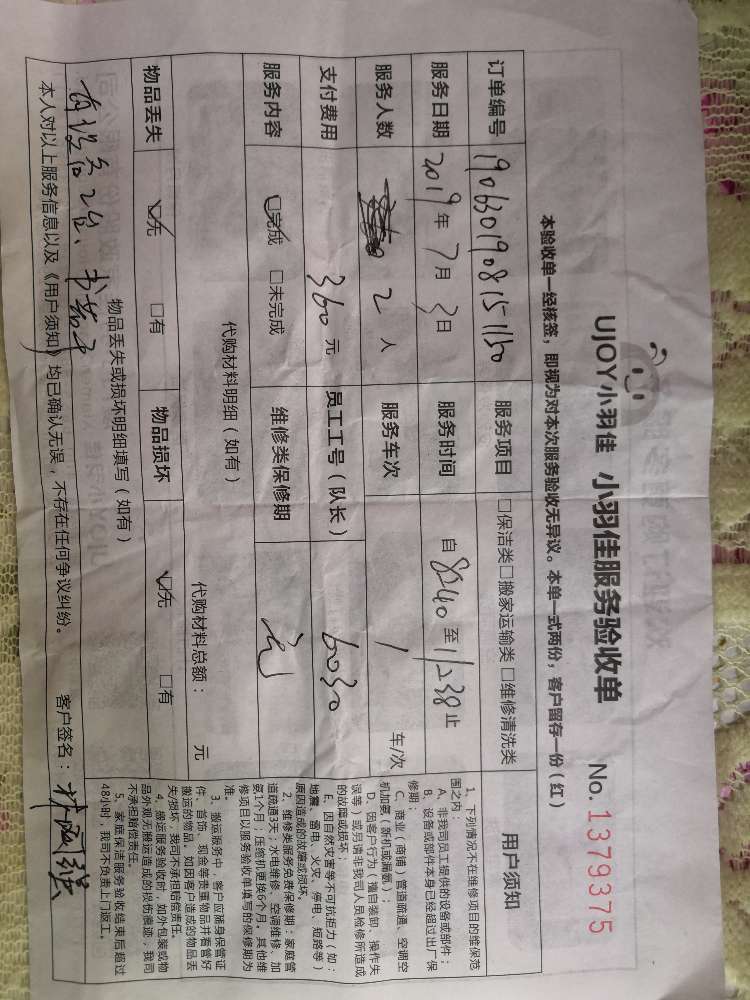 UJOY小羽佳 小羽佳服务验收单 No. 1379375
本验收单一经核签，即视为对本次服务验收无异议。本单一式两份，客户留存一份（红）
订单编号 1906301908151150 服务项目 □保洁类□搬家运输类□维修清洗类
服务日期 2019年7月3日 服务时间 自8:40至11:38止
服务人数 2人 服务车次 1 车/次
支付费用 360元 员工工号（队长） 6030
服务内容 ☑完成 □未完成 维修类保修期 无
代购材料明细（如有） 代购材料总额： 元
物品丢失 ☑无 □有 物品损坏 ☑无 □有
物品丢失或损坏明细填写（如有）
本人对以上服务信息以及《用户须知》均已确认无误，不存在任何争议纠纷。 客户签名：
用户须知
1、下列情况不在维修项目的维保范
围之内：
A、非我司员工提供的设备或部件；
B、设备或部件本身已经超过出厂保
修期；
C、商业（商铺）管道疏通、空调空
机加氨（新机或漏氨）；
D、因客户行为（擅自装卸、操作失
误等）或另请非我司人员检修所造成
的故障或损坏；
E、因自然灾害等不可抗拒力（如：
地震、雷电、火灾、停电、短路等）
原因造成的故障或损坏。
2、维修类服务免费保修期：家庭管
道疏通3天；水电维修、空调维修、加
氨1个月；压缩机更换6个月。其他维
修项目以服务验收单填写的保修期为
准。
3、搬运服务中，客户应随身保管证
件、首饰、现金等贵重物品并看管好
搬运的物品。如因客户造成的物品丢
失/损坏，我司不承担赔偿责任。
4、搬运服务验收时，如外包装或物
品外观无搬运造成的损伤痕迹，我司
不承担赔偿责任。
5、家庭保洁服务验收结束后超过
48小时，我司不负责上门返工。